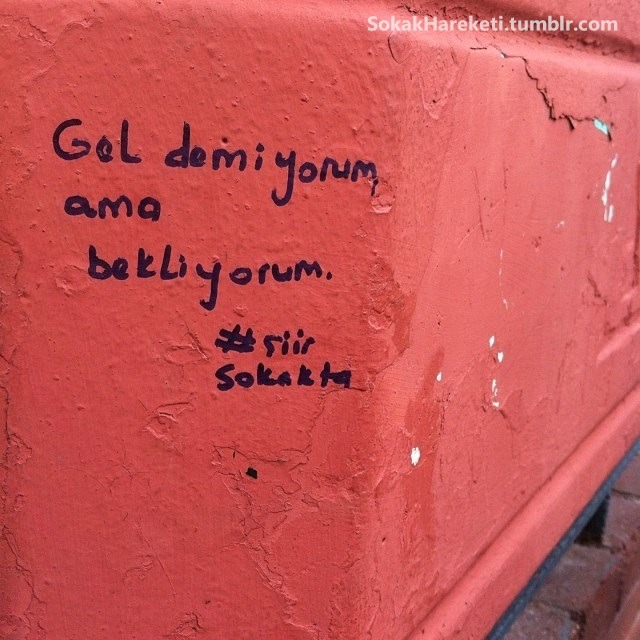 SokakHareketi.tumblr.com
Gel demiyorum,
ama
bekliyorum.
#şiir
Sokakta